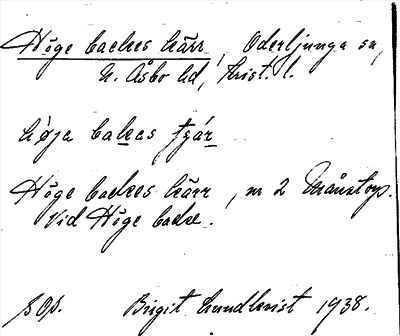 Höge backes kärr, Oderljunga sn,
N. Åsbo hd, Krist. l.
höja bakes tjär
Höge backes kärr, nr 2 Månstorp.
Vid Höge backe.
sop. Birgit Lundkvist 1938.